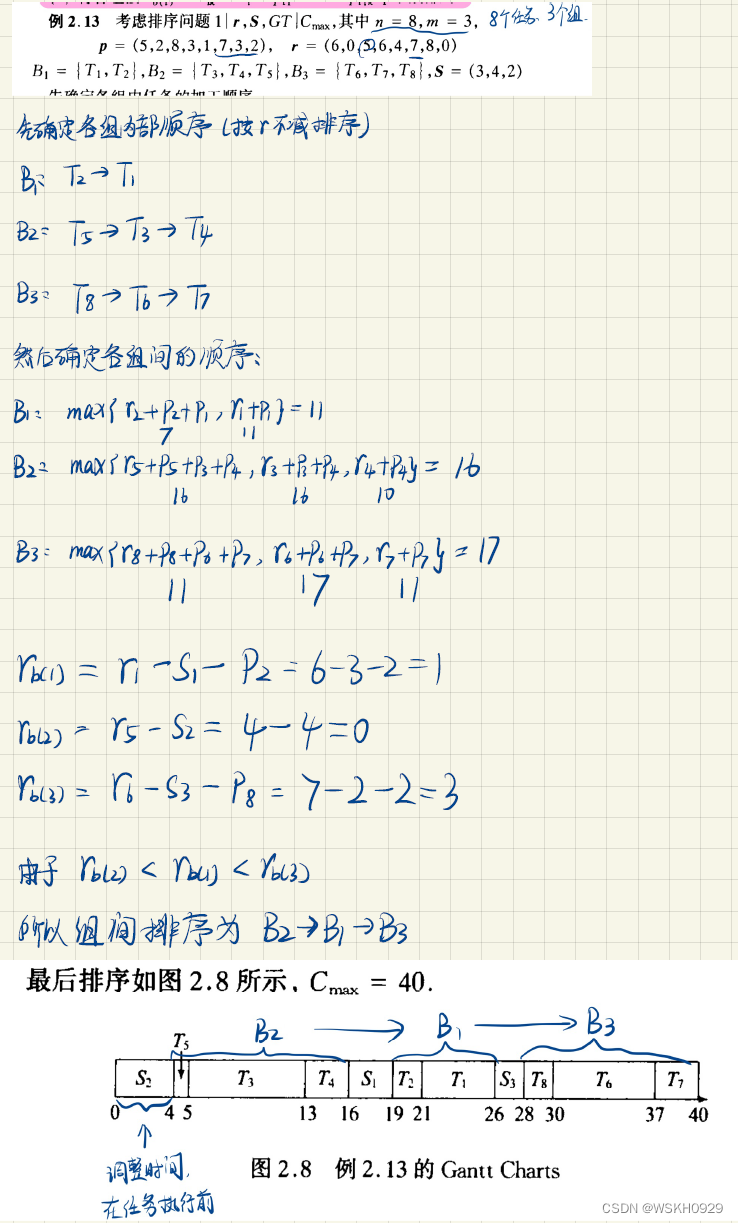 例 2.13 考虑排序问题 1 | r, S, GT | Cmax, 其中 n = 8, m = 3, 8个任务 3个组
p = (5,2,8,3,1,7,3,2), r = (6,0,5,6,4,7,8,0)
B₁ = {T₁,T₂}, B₂ = {T₃,T₄,T₅}, B₃ = {T₆,T₇,T₈}, S = (3,4,2)
先确定各组内部顺序 (按r不减排序)
B₁: T₂→T₁
B₂: T₅→T₃→T₄
B₃: T₈→T₆→T₇
然后确定各组间的顺序:
B₁: max{r₂+P₂+P₁, r₁+P₁} = 11
7 11
B₂: max{r₅+P₅+P₃+P₄, r₃+P₃+P₄, r₄+P₄} = 16
16 16 10
B₃: max{r₈+P₈+P₆+P₇, r₆+P₆+P₇, r₇+P₇} = 17
11 17 11
r_b(1) = r₁ - S₁ - P₂ = 6-3-2 = 1
r_b(2) = r₅ - S₂ = 4-4 = 0
r_b(3) = r₆ - S₃ - P₈ = 7-2-2 = 3
由于 r_b(2) < r_b(1) < r_b(3)
所以组间排序为 B₂→B₁→B₃
最后排序如图 2.8 所示, Cmax = 40.
B₂ → B₁ → B₃
T₅
S₂ T₃ T₄ S₁ T₂ T₁ S₃ T₈ T₆ T₇
0 4 5 13 16 19 21 26 28 30 37 40
调整时间,
在任务执行前
图 2.8 例 2.13 的 Gantt Charts
CSDN @WSKH0929